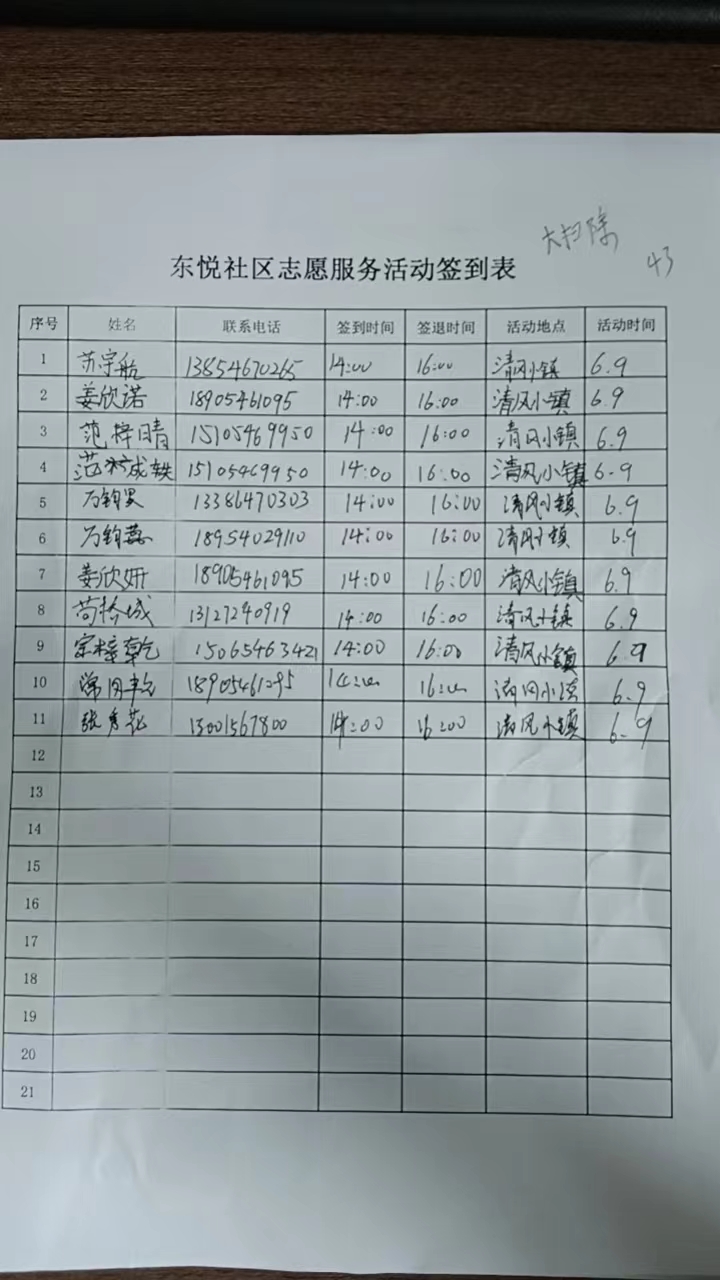 大扫除
43
东悦社区志愿服务活动签到表
序号 姓名 联系电话 签到时间 签退时间 活动地点 活动时间
1 苏宇航 13854670265 14:00 16:00 清风小镇 6.9
2 姜欣诺 18905461095 14:00 16:00 清风小镇 6.9
3 范梓晴 15105469950 14:00 16:00 清风小镇 6.9
4 15105469950 14:00 16:00 清风小镇 6.9
5 13386470303 14:00 16:00 清风小镇 6.9
6 18954029110 14:00 16:00 清风小镇 6.9
7 姜欣妍 18905461095 14:00 16:00 清风小镇 6.9
8 13127240919 14:00 16:00 清风小镇 6.9
9 宗梓乾 15065463421 14:00 16:00 清风小镇 6.9
10 18905461295 14:00 16:00 清风小镇 6.9
11 张秀花 13001567800 14:00 16:00 清风小镇 6.9
12
13
14
15
16
17
18
19
20
21